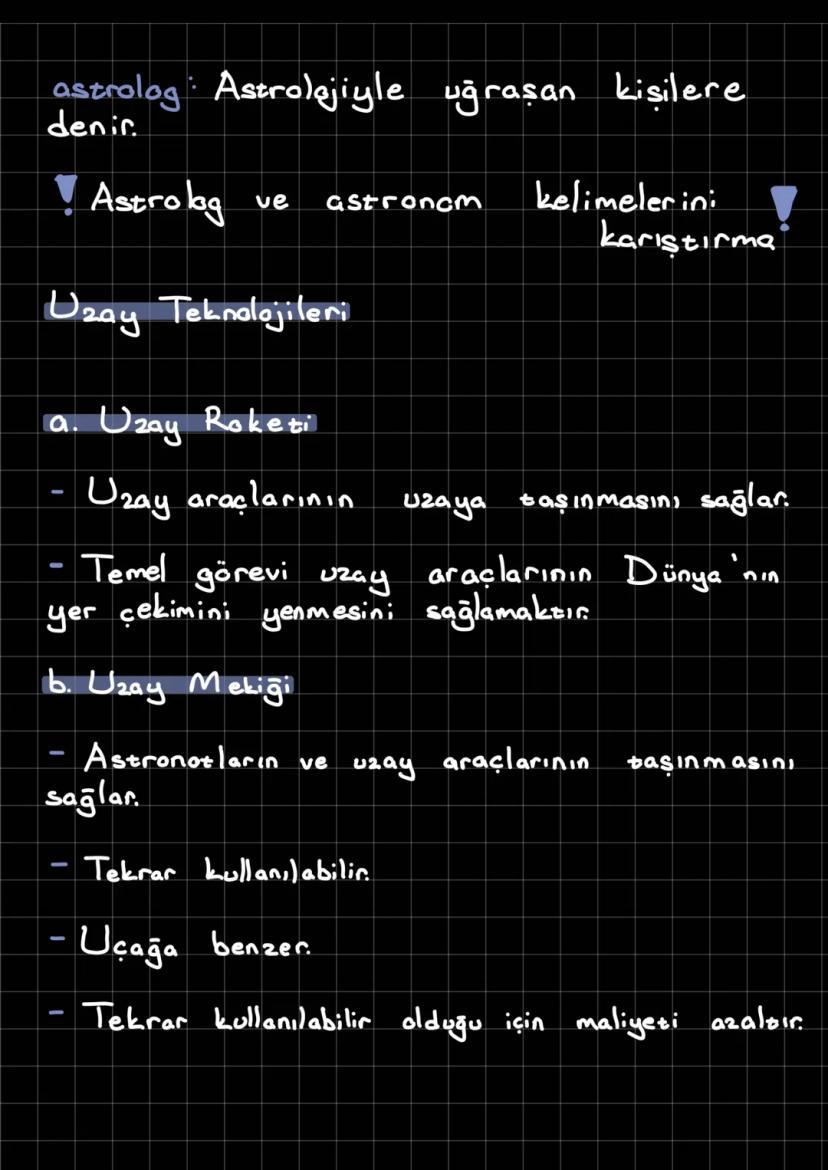 astrolog: Astrolojiyle uğraşan kişilere
denir.
! Astrolog ve astronom kelimelerini !
karıştırma
Uzay Teknolojileri
a. Uzay Roketi
- Uzay araçlarının uzaya taşınmasını sağlar.
- Temel görevi uzay araçlarının Dünya'nın
yer çekimini yenmesini sağlamaktır.
b. Uzay Mekiği
- Astronotların ve uzay araçlarının taşınmasını
sağlar.
- Tekrar kullanılabilir.
- Uçağa benzer.
- Tekrar kullanılabilir olduğu için maliyeti azaltır.